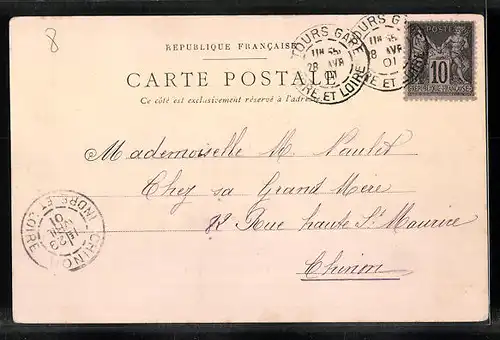 8
REPUBLIQUE FRANÇAISE
CARTE POSTALE
Ce côté est exclusivement réservé à l'adresse
TOURS-GARE
28 AVR
01
INDRE ET LOIRE
TOURS GARE
28 AVR
01
POSTES
10
REPUBLIQUE FRANÇAISE
Mademoiselle M. Naulet
Chez sa Grand Mère
Rue haute St Maurice
Chinon
CHINON
01
INDRE ET LOIRE